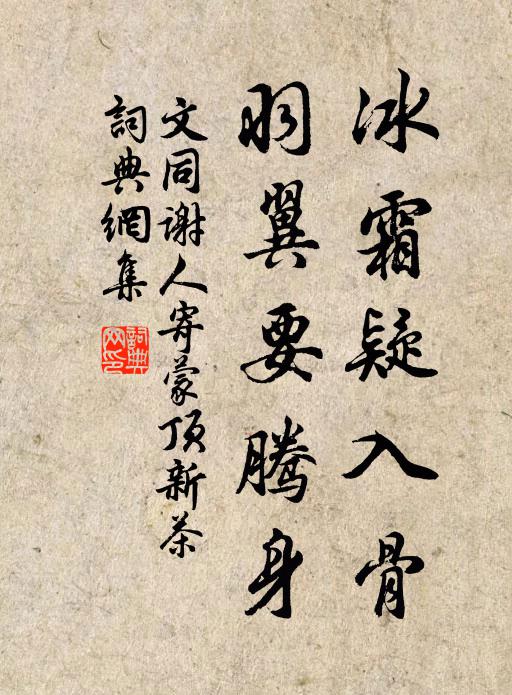 冰霜疑入骨
羽翼要騰身
文同謝人寄蒙頂新茶
詞典網集
詞典网印